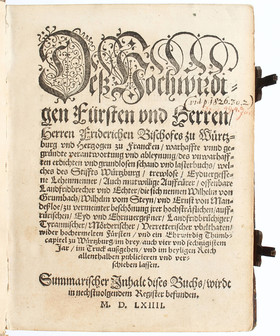 Deß Hochwirdi-
gen Fürsten und Herren/
Herren Friderichen Bischofes zu Würtz-
burg und Hertzogen zu Francken/ warhaffte unnd ge-
gründte verantwortung und ableynung/ des unwarhaff-
ten erdichten und grundlosen schand und lasterbuchs/ wel-
ches des Stiffts Würtzburg/ trewlose/ Eydvergesse-
ne Lehenmenner/ Auch mutwillige Auffrürer/ offenbare
Landfridbrecher und Echter/ die sich nennen Wilhelm von
Grumbach/ Wilhelm vom Steyn/ und Ernst von Man-
deßloe/ zu vermeinter beschönung jrer hochsträflichen/ auff-
rürischen/ Eyd und Ehrnvergeßner/ Landfridbrüchiger/
Tyrannischer/ Mörderischer/ Verretterischer übelthaten/
wider hochermelten Fürsten/ und ein Erwirdig Thumb-
capitel zu Würtzburg im drey und vier und sechtzigistem
Jar/ im Truck außgehen/ und im heyligen Reich
allenthalben publicieren und ver-
schieben lassen.
Summarischer Inhalt dises Buchs/ wirdt
in nechstvolgendem Register befunden.
M. D. LXIIII.